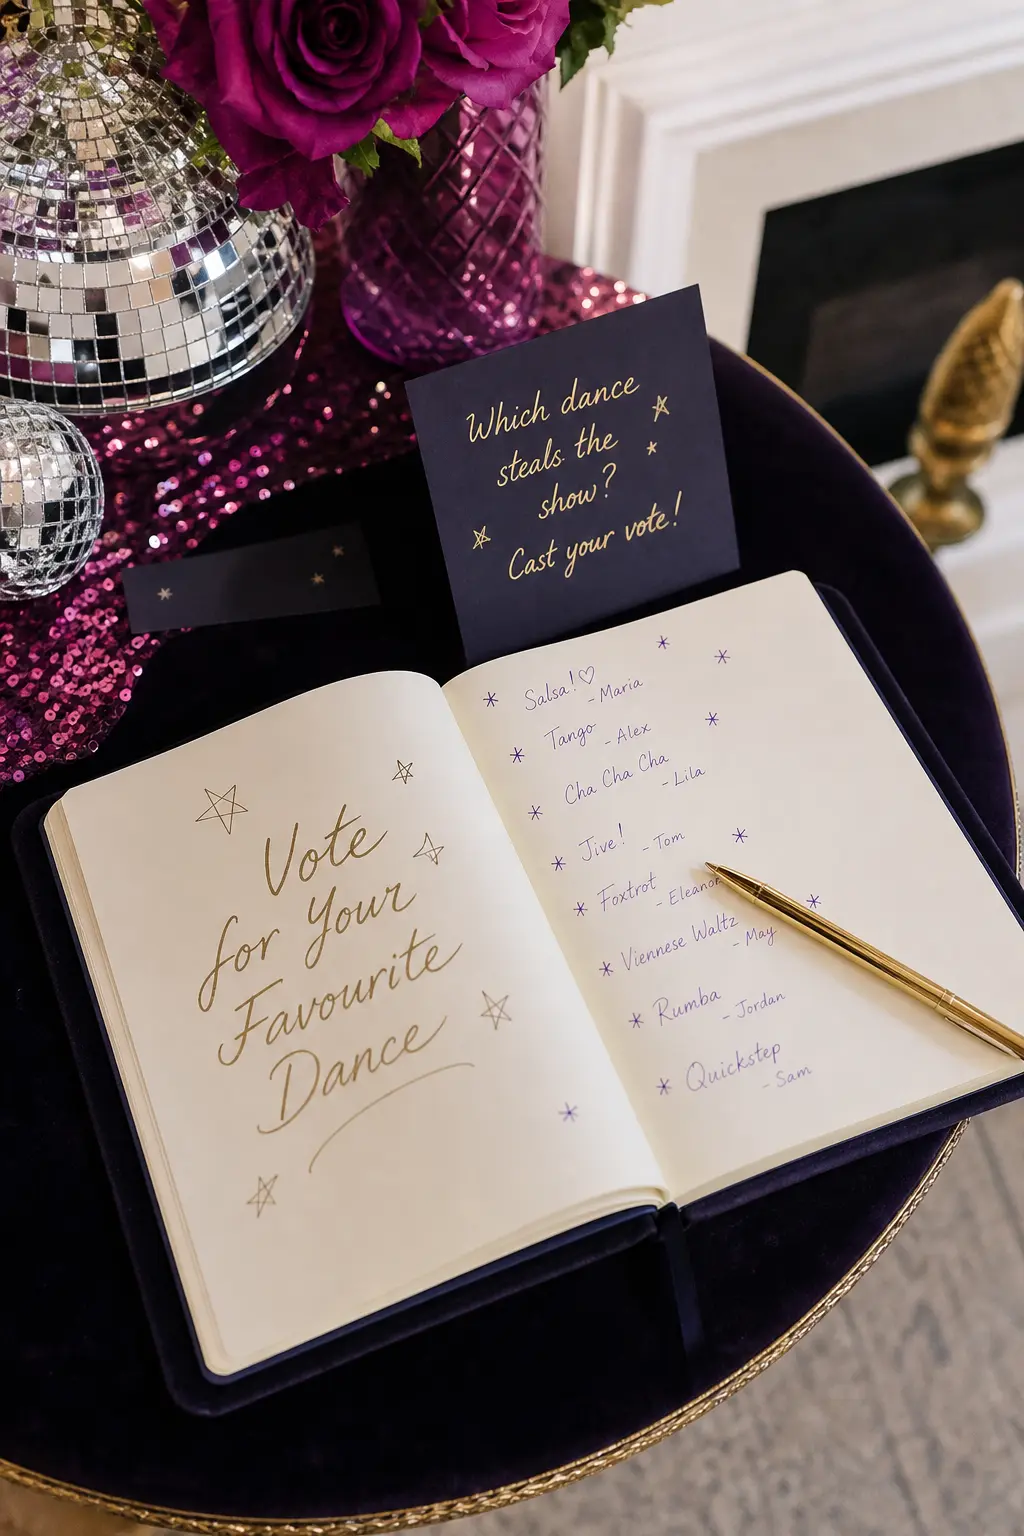 Which dance
steals the
show?
Cast your vote!
Vote
for Your
Favourite
Dance
Salsa!♡
- Maria
Tango
- Alex
Cha Cha Cha
- Lila
Jive!
- Tom
Foxtrot
- Eleanor
Viennese Waltz
- May
Rumba
- Jordan
Quickstep
- Sam